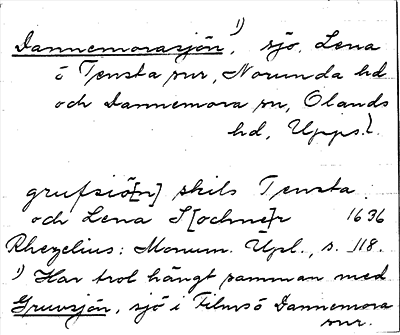 Dannemorasjön,¹⁾ sjö, Lena
o Tensta snr, Norunda hd
och Dannemora sn, Olands
hd, Upps.l.
grufsiö[n] skils Tensta
och Lena S[ochne]r 1636
Rhezelius: Monum. Upl., s. 118.
¹⁾ Har trol hängt samman med
Gruvsjön, sjö i Films o Dannemora
snr.